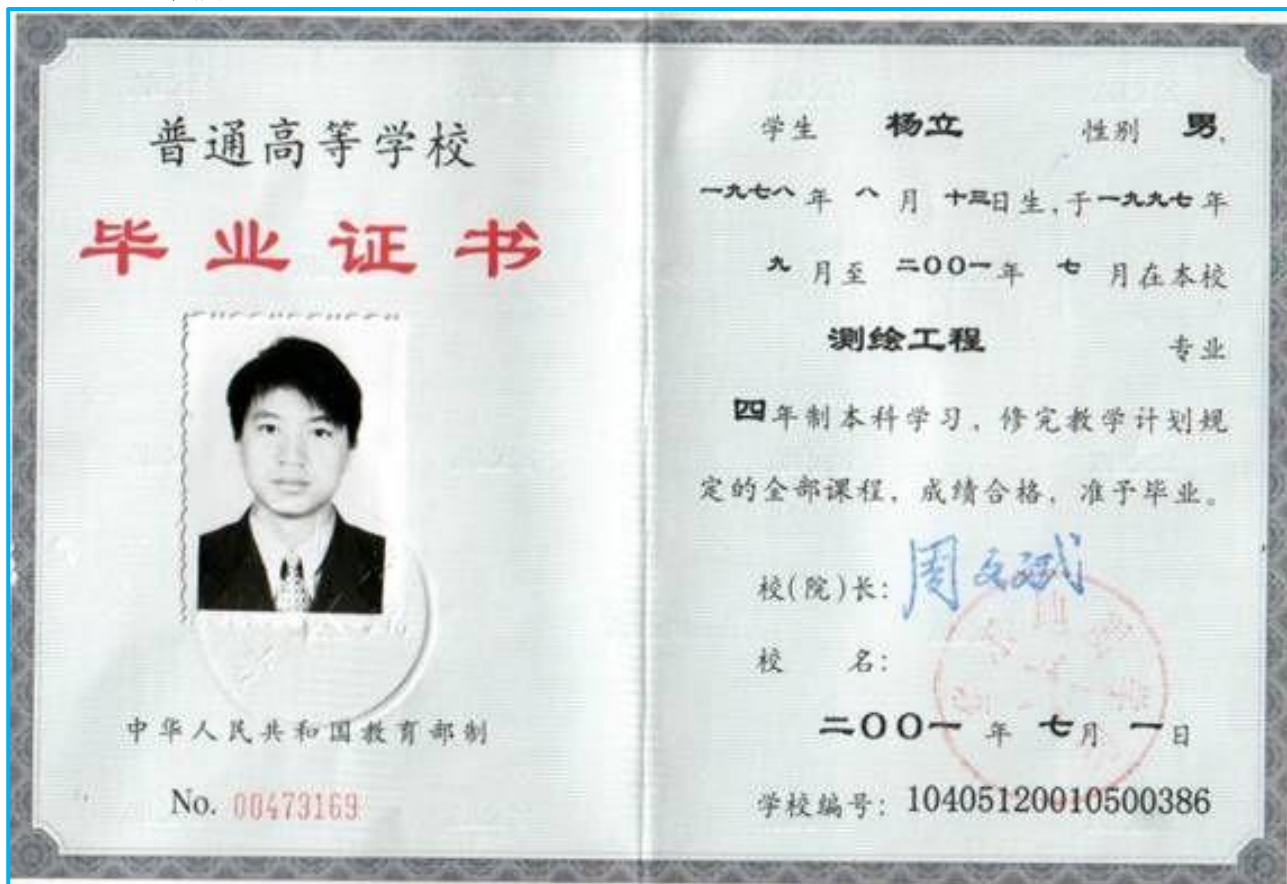 普通高等学校
毕业证书
中华人民共和国教育部制
No. 00473169
学生 杨立 性别 男,
一九七八年 八 月 十三日生,于一九九七年
九 月至 二〇〇一年 七 月在本校
测绘工程 专业
四年制本科学习, 修完教学计划规
定的全部课程, 成绩合格, 准予毕业。
校(院)长: 周文斌
校 名:
二〇〇一 年 七月 一日
学校编号: 10405120010500386